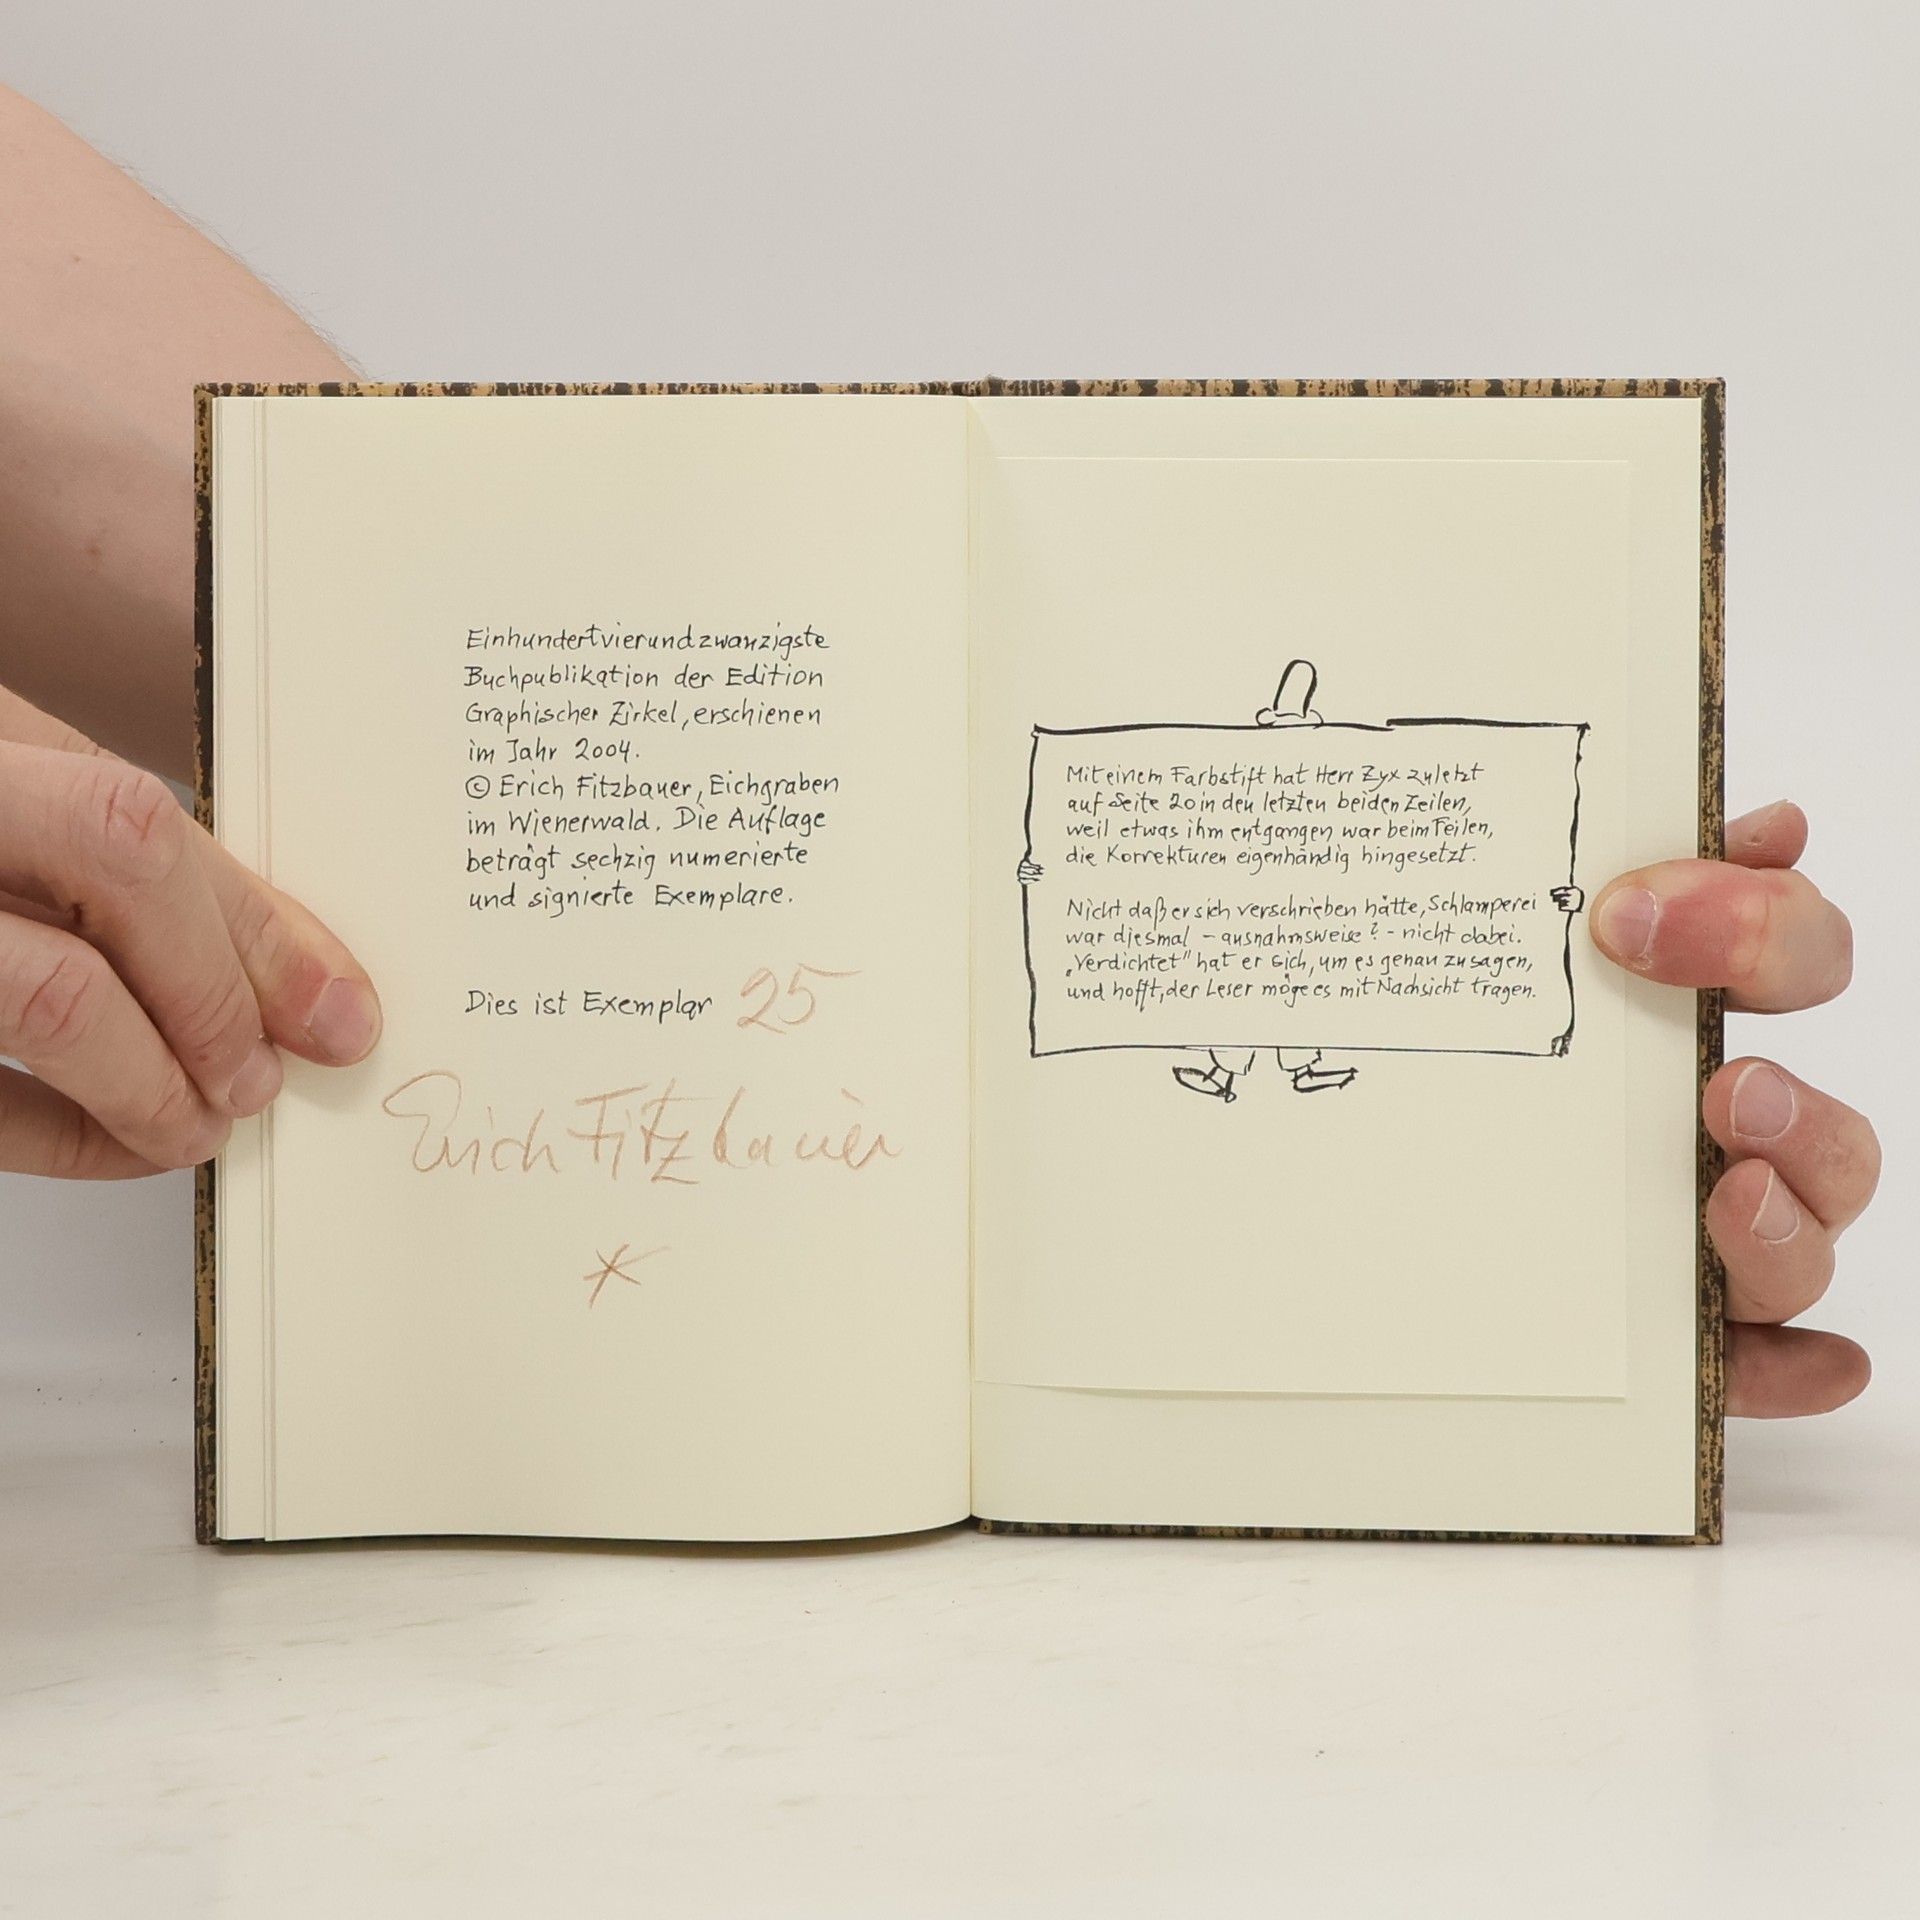 Einhundertvierundzwanzigste
Buchpublikation der Edition
Graphischer Zirkel, erschienen
im Jahr 2004.
© Erich Fitzbauer, Eichgraben
im Wienerwald. Die Auflage
beträgt sechzig numerierte
und signierte Exemplare.
Dies ist Exemplar 25
Erich Fitzbauer
*
Mit einem Farbstift hat Herr Zyx zuletzt
auf Seite 20 in den letzten beiden Zeilen,
weil etwas ihm entgangen war beim Feilen,
die Korrekturen eigenhändig hingesetzt.
Nicht daß er sich verschrieben hätte, Schlamperei
war diesmal – ausnahmsweise? – nicht dabei.
„Verdichtet" hat er sich, um es genau zu sagen,
und hofft, der Leser möge es mit Nachsicht tragen.